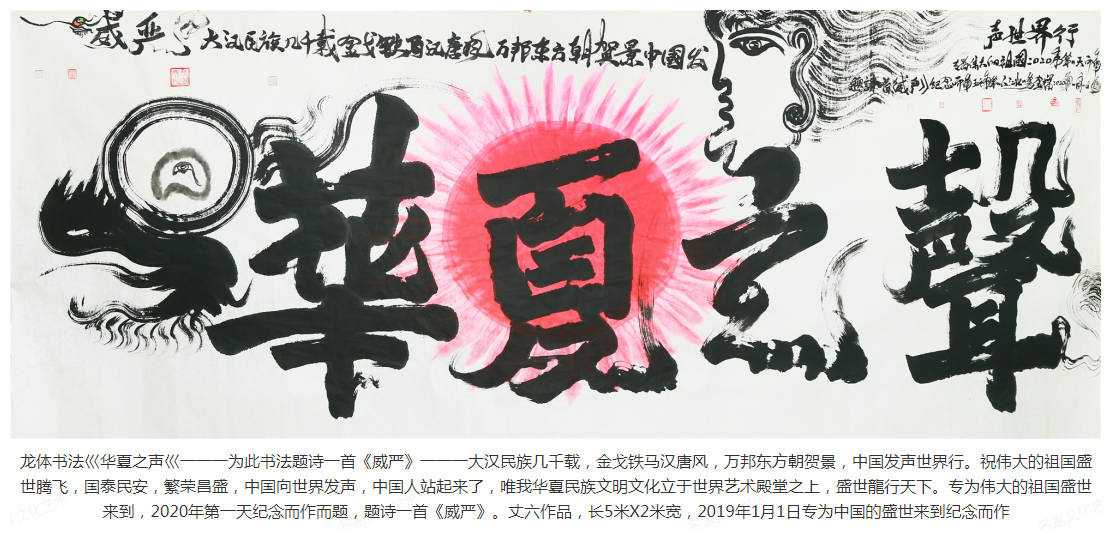 威严
大汉民族几千载金戈铁马汉唐风万邦东方朝贺景中国发
声世界行
華夏之聲
龙体书法巛华夏之声巛一一一为此书法题诗一首《威严》一一一大汉民族几千载，金戈铁马汉唐风，万邦东方朝贺景，中国发声世界行。祝伟大的祖国盛
世腾飞，国泰民安，繁荣昌盛，中国向世界发声，中国人站起来了，唯我华夏民族文明文化立于世界艺术殿堂之上，盛世龍行天下。专为伟大的祖国盛世
来到，2020年第一天纪念而作而题，题诗一首《威严》。丈六作品，长5米X2米宽，2019年1月1日专为中国的盛世来到纪念而作